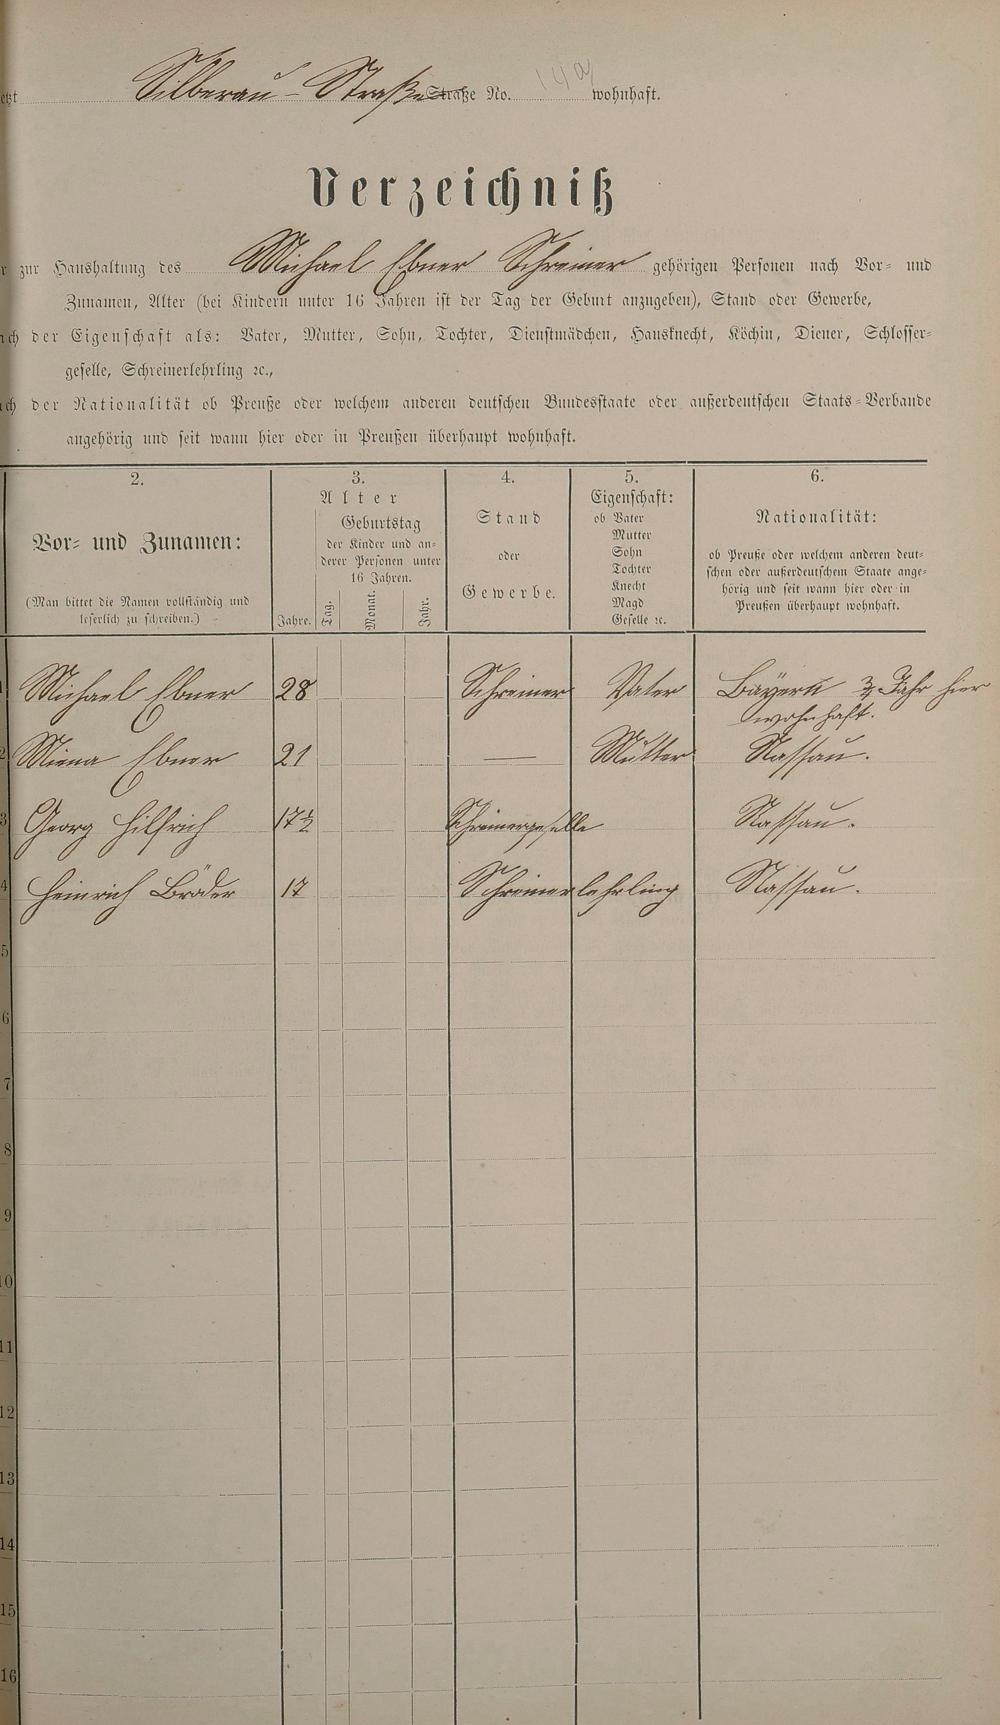 etzt Silberau-Straße Straße No. 14a wohnhaft.
Verzeichniß
r zur Haushaltung des Michael Ebner Schreiner gehörigen Personen nach Vor- und
Zunamen, Alter (bei Kindern unter 16 Jahren ist der Tag der Geburt anzugeben), Stand oder Gewerbe,
ch der Eigenschaft als: Vater, Mutter, Sohn, Tochter, Dienstmädchen, Hausknecht, Köchin, Diener, Schlosser-
geselle, Schreinerlehrling ꝛc.,
ch der Nationalität ob Preuße oder welchem anderen deutschen Bundesstaate oder außerdeutschen Staats-Verbande
angehörig und seit wann hier oder in Preußen überhaupt wohnhaft.
2.
Vor- und Zunamen:
(Man bittet die Namen vollständig und
leserlich zu schreiben.)
3.
Alter
Geburtstag
der Kinder und an-
derer Personen unter
16 Jahren.
Jahre. Tag. Monat. Jahr.
4.
Stand
oder
Gewerbe.
5.
Eigenschaft:
ob Vater
Mutter
Sohn
Tochter
Knecht
Magd
Geselle ꝛc.
6.
Nationalität:
ob Preuße oder welchem anderen deut-
schen oder außerdeutschem Staate ange-
hörig und seit wann hier oder in
Preußen überhaupt wohnhaft.
1 Michael Ebner 28 Schreiner Vater Bayern ¾ Jahr hier
wohnhaft.
2 Miena Ebner 21 — Mutter Nassau.
3 Georg Hilfrich 17½ Schreinergeselle Nassau.
4 Heinrich Bröder 17 Schreinerlehrling Nassau.
5
6
7
8
9
10
11
12
13
14
15
16